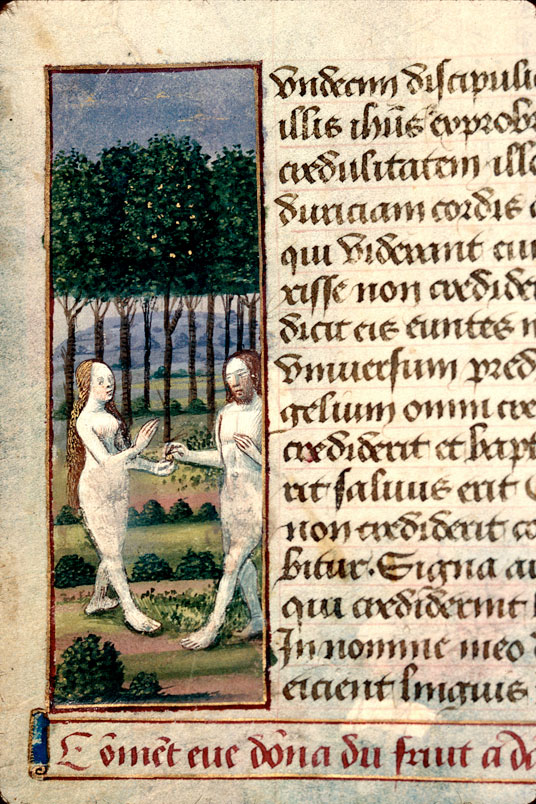 vndecim discipulis
illis ih̄us exprobr
credulitatem illo
duriciam cordis
qui viderant eu
rexisse non credider
dicit eis euntes
vniuersum pred
gelium omni cre
crediderit et bapt
rit saluus erit
non crediderit co
bitur. Signa au
qui crediderint
In nomine meo
eicient linguis
Cōmēt eue dōna du fruit a da